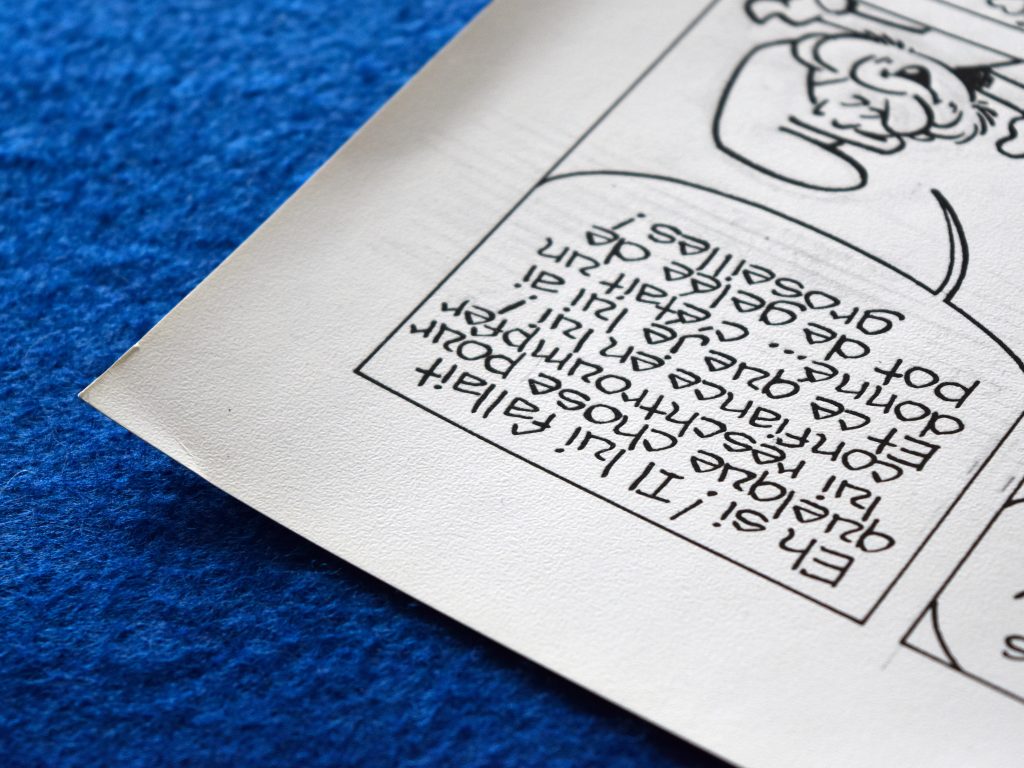 Eh si ! Il lui fallait
quelque chose pour
lui reschtroumpfer
confiance en lui !
Et ce que je lui ai
donné... c'était un
pot de gelée de
groseilles !